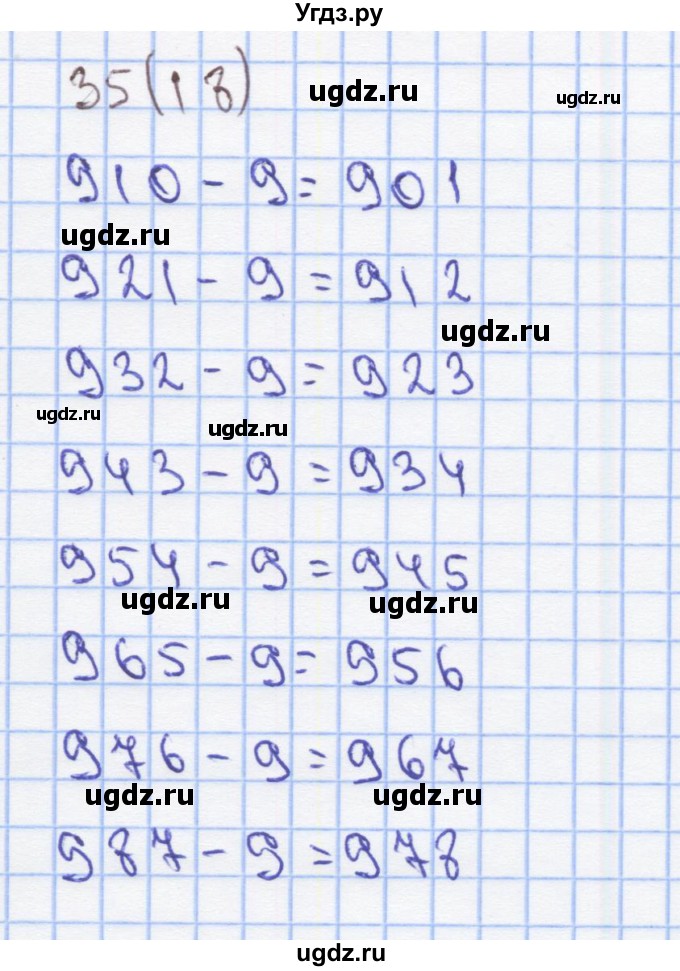 Угдз.ру
35(13)
ugdz.ru
ugdz.ru
910 - 9 = 901
ugdz.ru
921 - 9 = 912
ugdz.ru
932 - 9 = 923
ugdz.ru
ugdz.ru
943 - 9 = 934
954 - 9 = 945
ugdz.ru
ugdz.ru
965 - 9 = 956
976 - 9 = 967
ugdz.ru
ugdz.ru
987 - 9 = 978
ugdz.ru